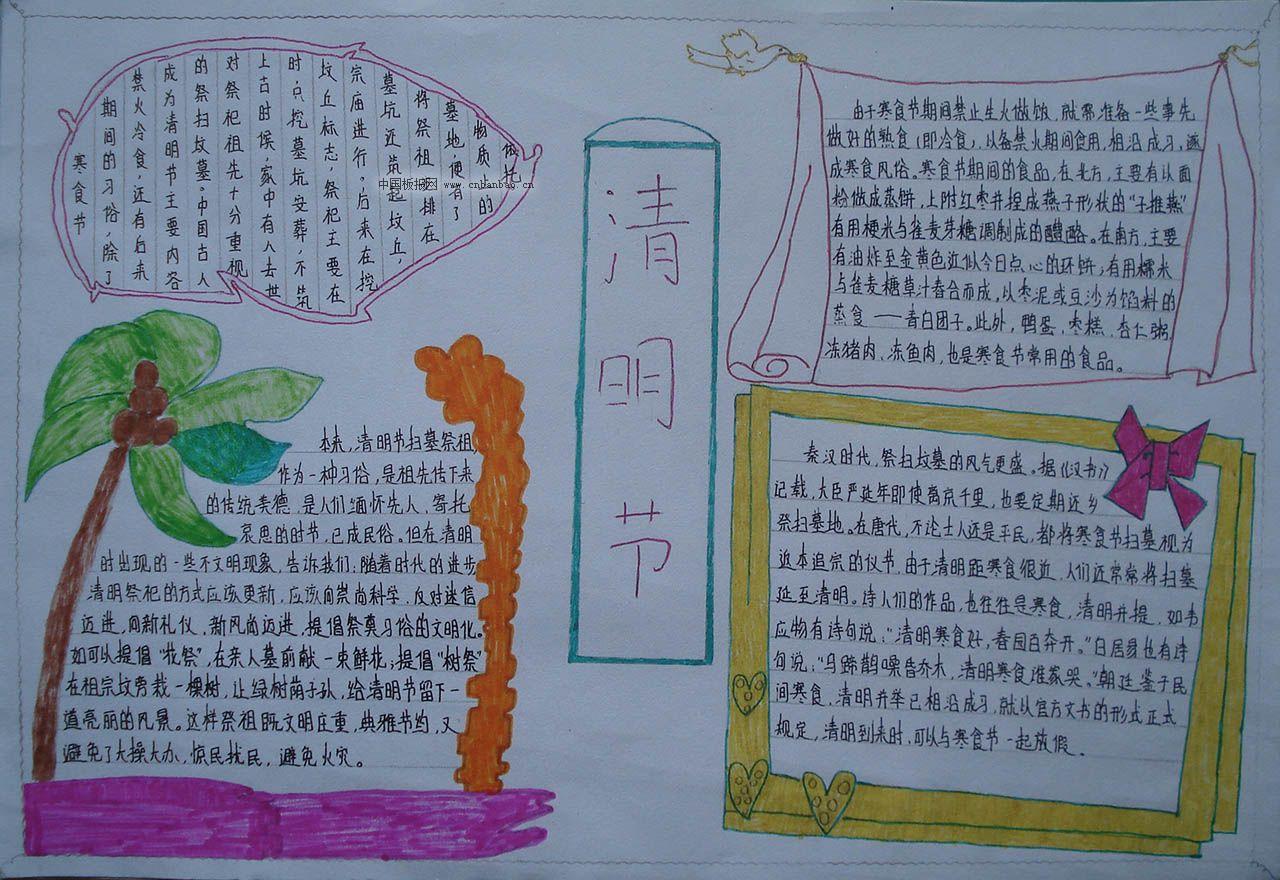 寒食节
期间的习俗,除了
禁火冷食,还有后来
成为清明节主要内容
的祭扫坟墓。中国古人
对祭祀祖先十分重视
上古时候,家中有人去世
时,只挖墓坑安葬,不筑
坟丘标志,祭祀主要在
宗庙进行。后来在挖
墓坑还筑起坟丘,
将祭祖 排在
墓地,便有了
物质上的
依托
中国板报网 www.cnbanbao.cn
清明节
由于寒食节期间禁止生火做饭,就需准备一些事先
做好的熟食(即冷食),以备禁火期间食用,相沿成习,遂
成寒食风俗。寒食节期间的食品,在北方,主要有以面
粉做成蒸饼,上附红枣并捏成燕子形状的“子推燕”
有用粳米与雀麦芽糖调制成的醴酪。在南方,主要
有油炸至金黄色近似今日点心的环饼;有用糯米
与雀麦糖草汁舂合而成,以枣泥或豆沙为馅料的
蒸食——青白团子。此外,鸭蛋、枣糕、杏仁粥、
冻猪肉、冻鱼肉,也是寒食节常用的食品。
本来,清明节扫墓祭祖,
作为一种习俗,是祖先传下来
的传统美德,是人们缅怀先人、寄托
哀思的时节,已成民俗。但在清明
时出现的一些不文明现象,告诉我们:随着时代的进步
清明祭祀的方式应该更新,应该向崇尚科学、反对迷信
迈进,向新礼仪、新风尚迈进,提倡祭奠习俗的文明化。
如可以提倡“花祭”,在亲人墓前献一束鲜花;提倡“树祭”
在祖宗坟旁栽一棵树,让绿树荫子孙,给清明节留下一
道亮丽的风景。这样祭祖既文明庄重,典雅节约,又
避免了大操大办,惊民扰民,避免火灾。
秦汉时代,祭扫坟墓的风气更盛。据《汉书》
记载,大臣严延年即使离京千里,也要定期还乡
祭扫墓地。在唐代,不论士人还是平民,都将寒食节扫墓视为
返本追宗的仪节,由于清明距寒食很近,人们还常常将扫墓
延至清明。诗人们的作品,也往往是寒食,清明并提,如韦
应物有诗句说:“清明寒食好,春园百卉开。”白居易也有诗
句说:“乌蹄鹊噪昏乔木,清明寒食谁家哭。”朝廷鉴于民
间寒食、清明并举已相沿成习,就以官方文书的形式正式
规定,清明到来时,可以与寒食节一起放假。